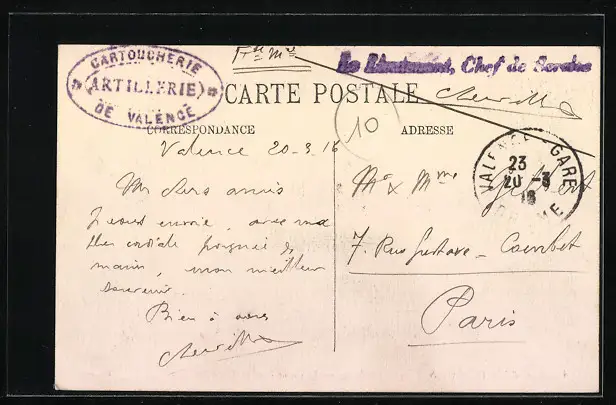 CARTOUCHERIE
ARTILLERIE
DE VALENCE
Fse Mre
Le Lieutenant, Chef de Service
CARTE POSTALE
10
CORRESPONDANCE
ADRESSE
Valence 20-3-16
VALENCE - GARE
23
20 - 3
16
DROME
Mes chers amis
Je vous envoie, avec ma
plus cordiale poignée de
mains, mon meilleur
souvenir.
Bien à vous
Mr & Mme Gilbert
7. Rue Gustave - Courbet
Paris